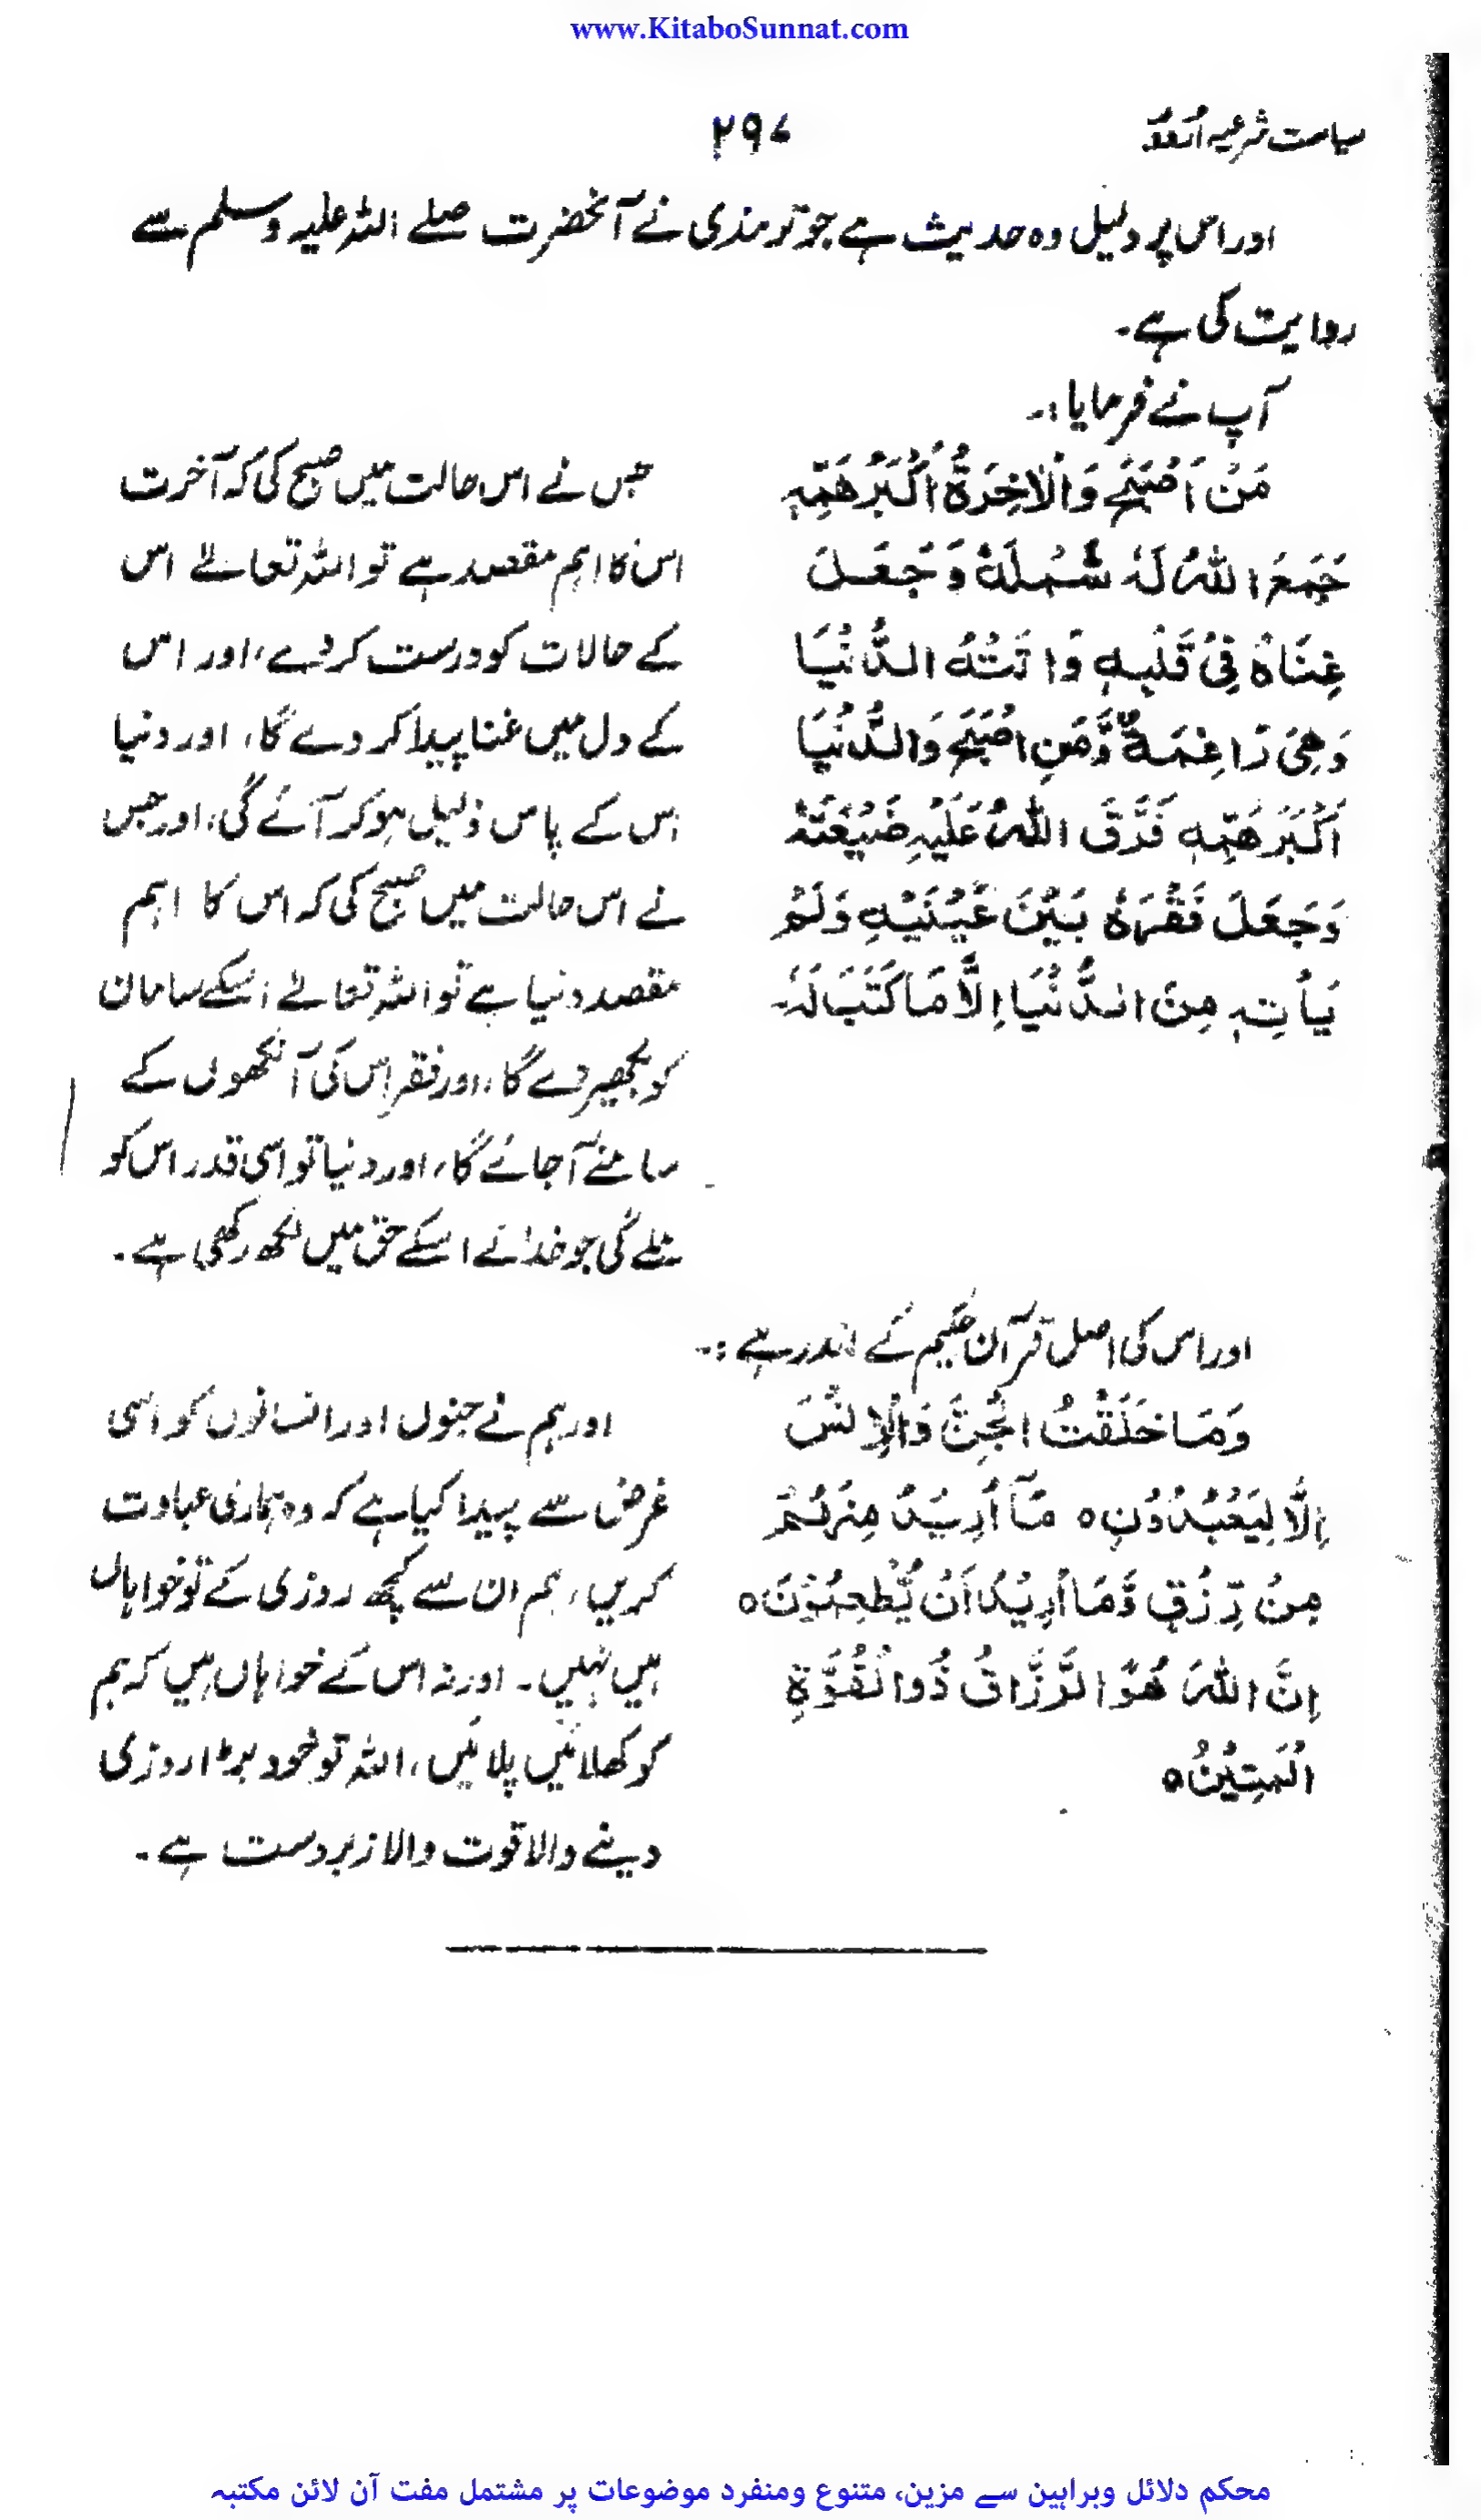 www.KitaboSunnat.com
سیاست شرعیہ اُردو
۲۹۷
اور اس پر دلیل وہ حدیث ہے جو ترمذی نے آنحضرت صلے اللہ علیہ وسلم سے
روایت کی ہے۔
آپ نے فرمایا:۔
مَنْ اَصْبَحَ وَالْاٰخِرَةُ اَكْبَرُ هَمِّهٖ
جَمَعَ اللّٰهُ لَهٗ شَمْلَهٗ وَجَعَلَ
غِنَاهُ فِیْ قَلْبِهٖ وَاَتَتْهُ الدُّنْیَا
وَهِیَ رَاغِمَةٌ وَّمَنِ اصْبَحَ وَالدُّنْیَا
اَكْبَرُ هَمِّهٖ فَرَّقَ اللّٰهُ عَلَیْهِ ضَیْعَتَهٗ
وَجَعَلَ فَقْرَهٗ بَیْنَ عَیْنَیْهِ وَلَمْ
یَأْتِهٖ مِنَ الدُّنْیَا اِلَّا مَا كَتَبَ لَهٗ۔
جس نے اس حالت میں صبح کی کہ آخرت
اس کا اہم مقصد ہے تو اللہ تعالےٰ اس
کے حالات کو درست کر دے، اور اس
کے دل میں غنا پیدا کر دے گا، اور دنیا
اس کے پاس ذلیل ہو کر آئے گی، اور جس
نے اس حالت میں صبح کی کہ اس کا اہم
مقصد دنیا ہے تو اللہ تعالےٰ اسکے سامان
کو بکھیر دے گا، اور فقر اس کی آنکھوں کے
سامنے آجائے گا، اور دنیا تو اسی قدر اس کو
ملے گی جو خدا نے اسکے حق میں لکھ رکھی ہے۔
اور اس کی اصل قرآن حکیم کے اندر ہے:۔
وَمَا خَلَقْتُ الْجِنَّ وَالْاِنْسَ
اِلَّا لِیَعْبُدُوْنِ ۝ مَآ اُرِیْدُ مِنْهُمْ
مِنْ رِّزْقٍ وَّمَا اُرِیْدُ اَنْ یُّطْعِمُوْنَ ۝
اِنَّ اللّٰهَ هُوَ الرَّزَّاقُ ذُوالْقُوَّةِ
الْمَتِیْنُ ۝
اور ہم نے جنوں اور انسانوں کو اسی
غرض سے پیدا کیا ہے کہ وہ ہماری عبادت
کریں، ہم ان سے کچھ روزی کے تو خواہاں
ہیں نہیں۔ اور نہ اس کے خواہاں ہیں کہ ہم
کو کھلائیں پلائیں، اللہ تو خود بڑا روزی
دینے والا قوت والا زبردست ہے۔
محکم دلائل وبراہین سے مزین، متنوع ومنفرد موضوعات پر مشتمل مفت آن لائن مکتبہ